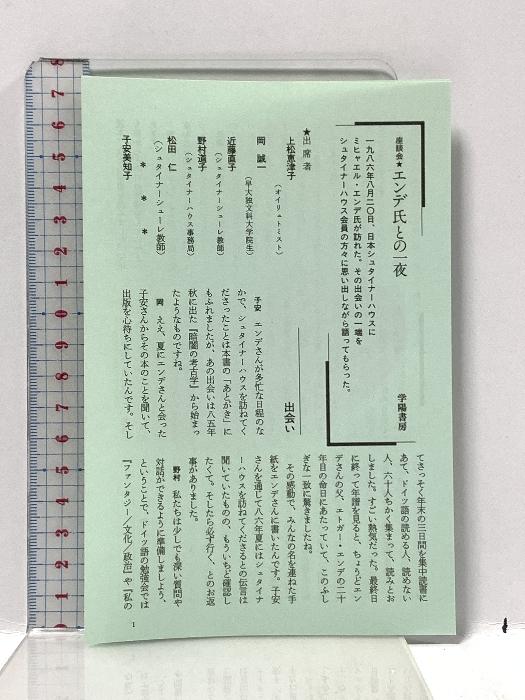 座談会★エンデ氏との一夜
一九八六年八月二〇日、日本シュタイナーハウスに
ミヒャエル・エンデ氏が訪れた。その出会いの一端を
シュタイナーハウス会員の方々に思い出しながら語ってもらった。
学陽書房
★出席者
上松恵津子
(オイリュトミスト)
岡 誠一
(早大独文科大学院生)
近藤直子
(シュタイナーシューレ教師)
野村道子
(シュタイナーハウス事務局)
松田 仁
(シュタイナーシューレ教師)
* * *
子安美知子
出会い
子安 エンデさんが多忙な日程のな
かで、シュタイナーハウスを訪ねてく
ださったことは本書の「あとがき」に
もふれましたが、あの出会いは八五年
秋に出た『暗闇の考古学』から始まっ
たようなものですね。
岡 ええ、夏にエンデさんと会った
子安さんからその本のことを聞いて、
出版を心待ちにしていたんです。そし
てさっそく年末の三日間を集中読書に
あて、ドイツ語の読める人、読めない
人、六十人ちかく集まって、読みとお
しました。すごい熱気だった。最終日
に終って年譜を見ると、ちょうどエン
デさんの父、エトガー・エンデの二十
年目の命日にあたっていて、このふし
ぎな一致に驚きましたね。
その感動で、みんなの名を連ねた手
紙をエンデさんに書いたんです。子安
さんを通じて八六年夏にはシュタイナ
ーハウスを訪ねてくださるとの伝言は
聞いていたものの、もういちど確認し
たくて。そしたら必ず行く、とのお返
事がありました。
野村 私たちは少しでも深い質問や
対話ができるように準備しましょう、
ということで、ドイツ語の勉強会では
『ファンタジー/文化/政治』や『私の
1